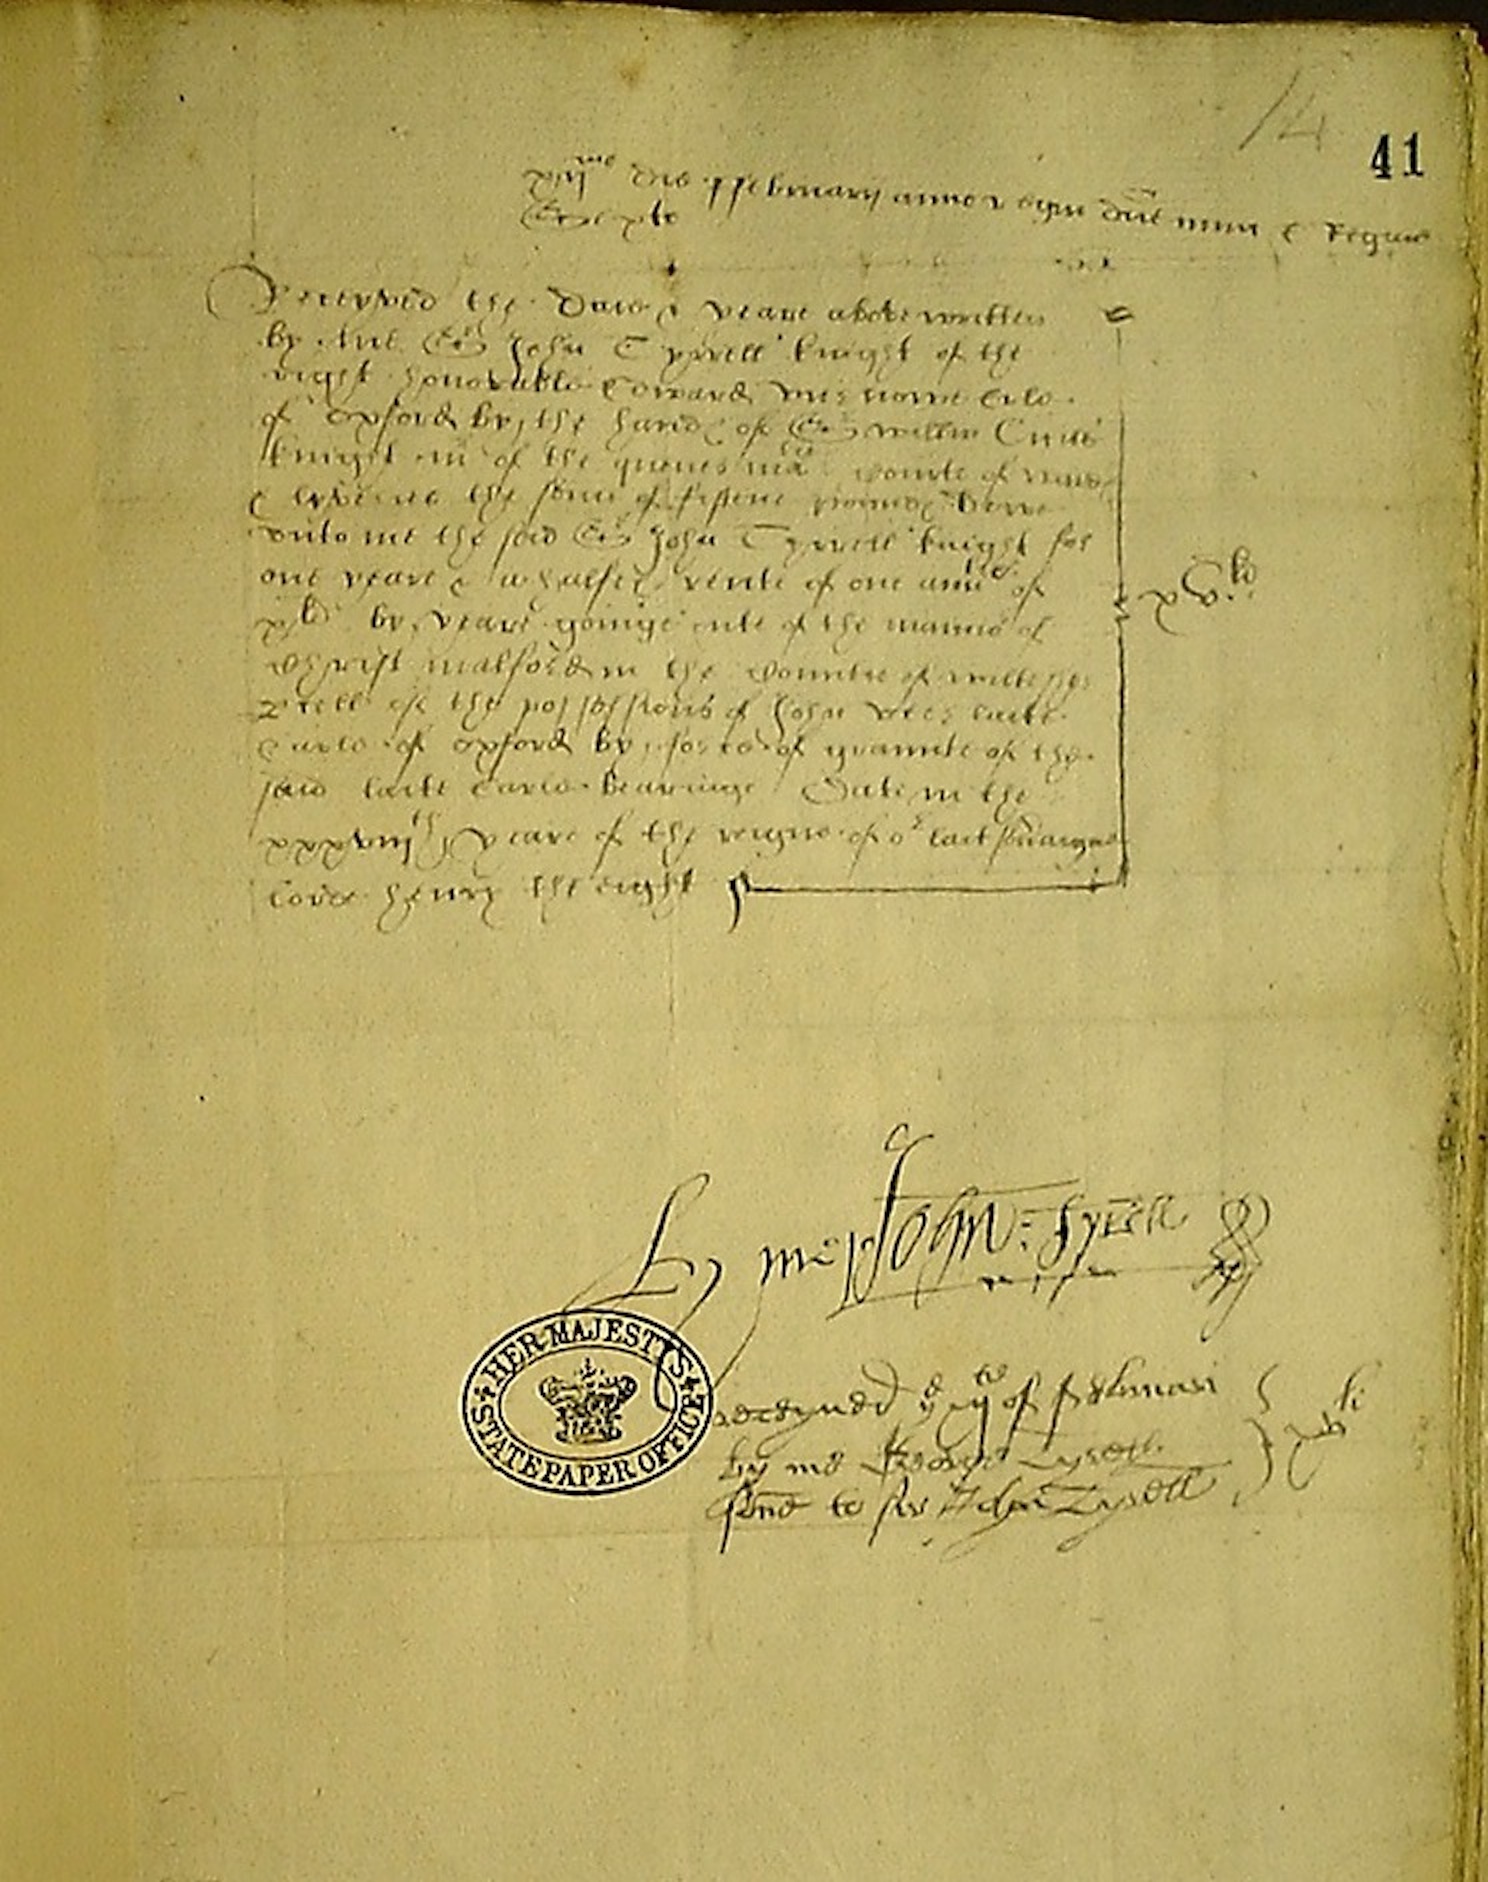 14
41
xiij me die ffebruarij anno regni dne nrine E Regine
Sexto
Receyved the daie & yeare above written
by me Sr John Tyrrell knight of the
right honorable Edward vere nowe Erle
of Oxford by the handℯ of Sr willm Cicill
knight mr of the quenes maties courte of wardℯ
& lyveries the some of fiftene poundℯ dewe
vnto me the said Sr John Tyrrell knight for
one yeare & a halfℯ rente of one annuitie of
xli by yeare goinge oute of the mannor of
Christ malford in the Countie of wiltesher
parcell of the possessions of John vere late
Earle of oxford by force of graunte of the
said late Earle bearinge Date in the
xxxviijth yeare of the reigne of or late soveraigne
lorde henry the eight
xvli
By me John Tyrell
receyued ye xiijte of februari
by me George Tyrell
sone to ser John Tyrell
xvli
HER MAJESTY'S
STATE PAPER OFFICE